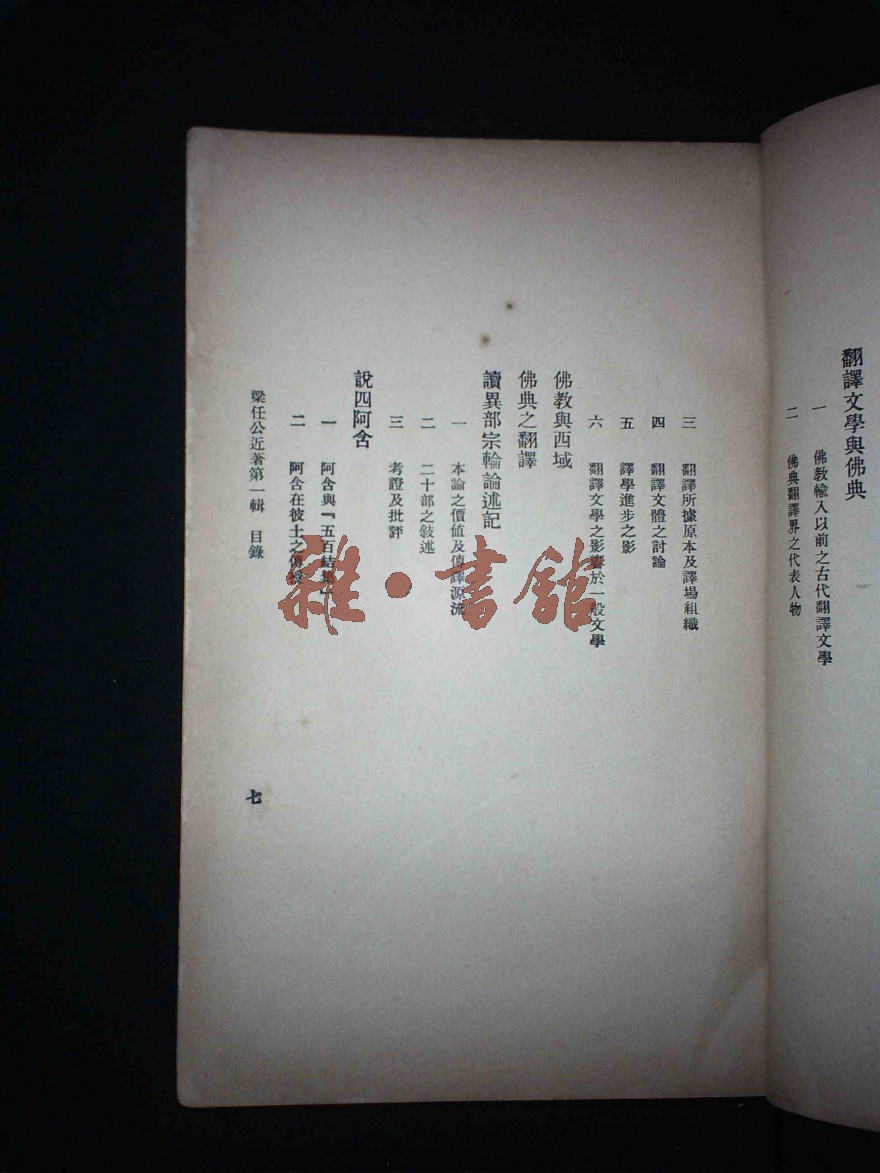 翻譯文學與佛典
一 佛教輸入以前之古代翻譯文學
二 佛典翻譯界之代表人物
三 翻譯所據原本及譯場組織
四 翻譯文體之討論
五 譯學進步之影
六 翻譯文學之影響於一般文學
佛教與西域
佛典之翻譯
讀異部宗輪論述記
一 本論之價值及傳譯源流
二 二十部之敍述
三 考證及批評
說四阿含
一 阿含與『五百結集』
二 阿含在彼土之傳授
梁任公近著第一輯 目錄
七
雜·書館